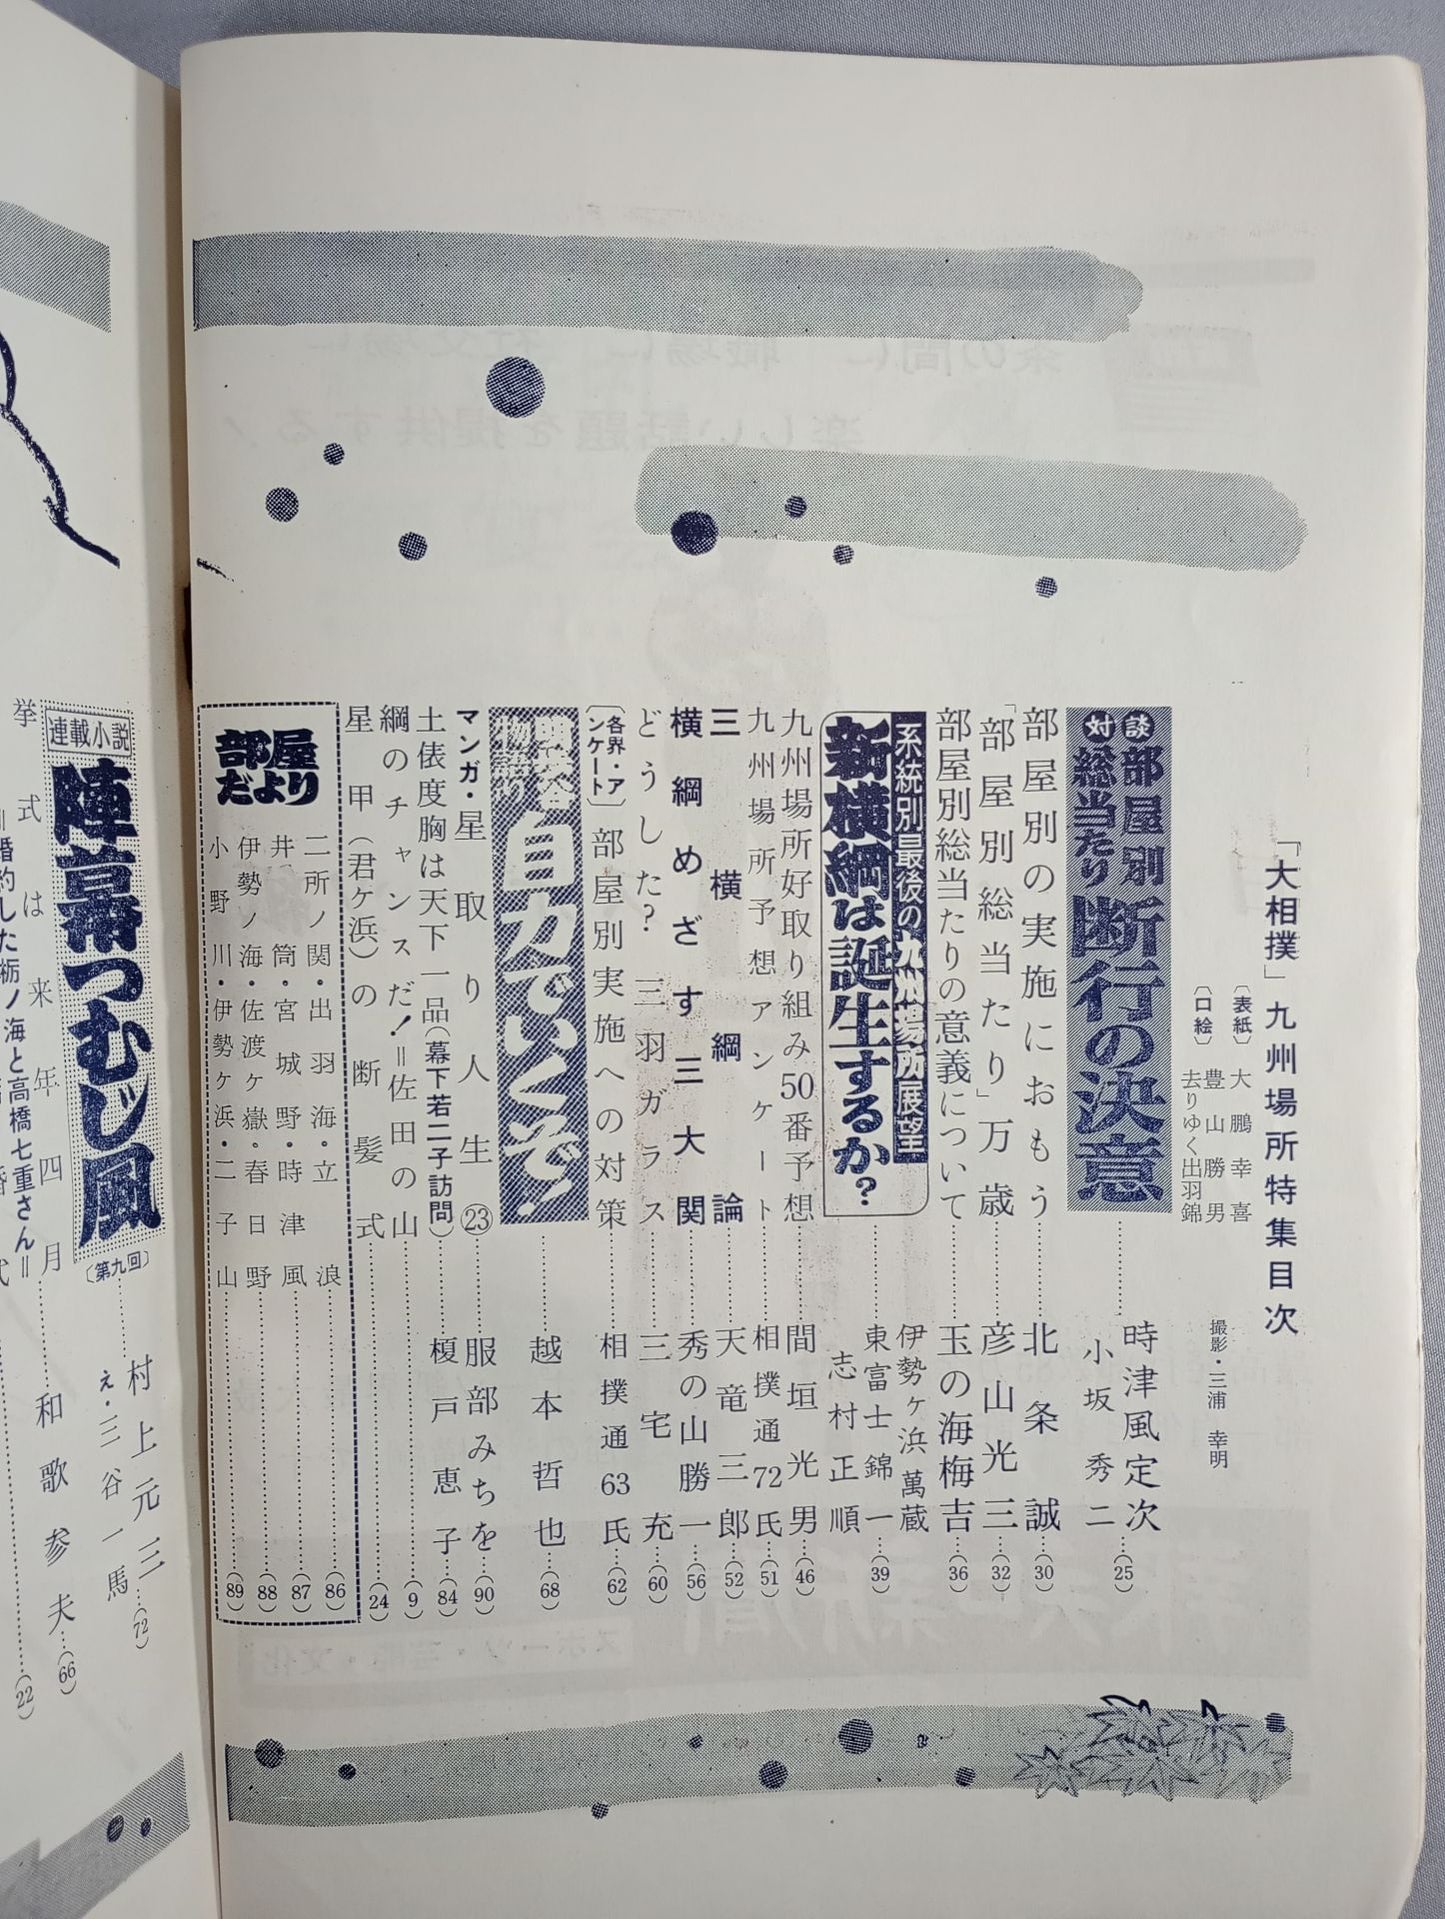 「大相撲」九州場所特集目次
〔表紙〕大鵬幸喜
〔口絵〕豊山勝男
去りゆく出羽錦
撮影・三浦幸明
対談
部屋別総当たり断行の決意……時津風定次
小坂秀二…(25)
部屋別の実施におもう……北条誠…(30)
「部屋別総当たり」万歳……彦山光三…(32)
部屋別総当たりの意義について……玉の海梅吉…(36)
系統別最後の九州場所展望
新横綱は誕生するか?……伊勢ヶ浜萬蔵
東富士錦一…(39)
志村正順
九州場所好取り組み50番予想……間垣光男…(46)
九州場所予想アンケート……相撲通72氏…(51)
三横綱論……天竜三郎…(52)
横綱めざす三大関……秀の山勝一…(56)
どうした?三羽ガラス……三宅充…(60)
〔各界・アンケート〕部屋別実施への対策……相撲通63氏…(62)
明武谷物語り
自力でいくぞ!……越本哲也…(68)
マンガ・星取り人生㉓……服部みちを…(90)
土俵度胸は天下一品(幕下若二子訪問)……榎戸恵子…(84)
綱のチャンスだ!=佐田の山……(9)
星甲(君ケ浜)の断髪式……(24)
部屋だより
二所ノ関・出羽海・立浪……(86)
井筒・宮城野・時津風……(87)
伊勢ノ海・佐渡ヶ嶽・春日野……(88)
小野川・伊勢ヶ浜・二子山……(89)
連載小説
陣幕つむじ風〔第九回〕……村上元三…(72)
え・三谷一馬
挙式は来年四月……和歌参夫…(66)
婚約した栃ノ海と高橋七重さん=
(22)